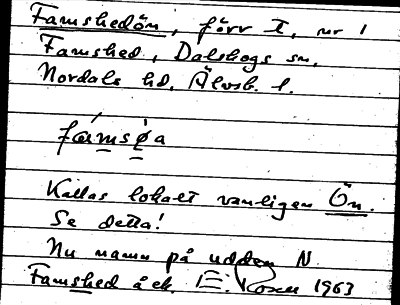 Famshedön, förr t, nr 1
Famshed, Dalskogs sn,
Nordals hd, Älvsb. l.
fámsǿa
Kallas lokalt vanligen Ön.
Se detta!
Nu namn på udden N.
Famshed å ek. 1963